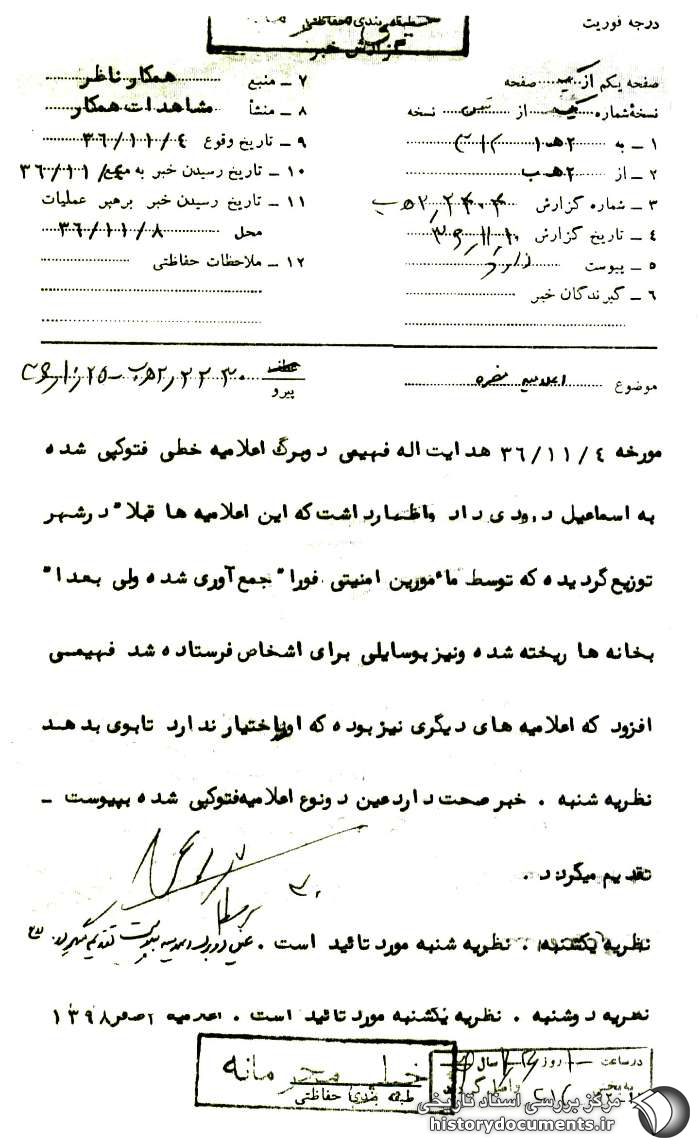 درجه فوریت
طبقه بندی حفاظتی
گزارش خبر
صفحه یکم از صفحه
نسخهٔ شماره از نسخه
۱ ـ به ۲ هـ ۱
۲ ـ از ۲ هـ ب
۳ ـ شماره گزارش
۴ ـ تاریخ گزارش
۵ ـ پیوست دارد
۶ ـ گیرندگان خبر
۷ ـ منبع همکار ناظر
۸ ـ منشأ مشاهدات همکار
۹ ـ تاریخ وقوع ۳۶/۱۱/۴
۱۰ ـ تاریخ رسیدن خبر به منبع ۳۶/۱۱/۴
۱۱ ـ تاریخ رسیدن خبر برهبر عملیات
محل ۳۶/۱۱/۸
۱۲ ـ ملاحظات حفاظتی
موضوع اعلامیه مضره
عطف
پیرو
مورخه ۳۶/۱۱/۴ هدایت اله فهیمی دوبرگ اعلامیه خطی فتوکپی شده
به اسماعیل درودی داد واظهارداشت که این اعلامیه ها قبلا" درشهر
توزیع گردیده که توسط مأمورین امنیتی فورا" جمع آوری شده ولی بعدا"
بخانه ها ریخته شده ونیز بوسایلی برای اشخاص فرستاده شد فهیمی
افزود که اعلامیه های دیگری نیز بوده که او اختیار ندارد تابوی بدهد
نظریه شنبه . خبر صحت دارد عین دونوع اعلامیه فتوکپی شده بپیوست ـ
تقدیم میگردد .
نظریه یکشنبه . نظریه شنبه مورد تائید است . عین دوبرگ اعلامیه بپیوست تقدیم میگردد
نظریه دوشنبه . نظریه یکشنبه مورد تائید است . اعلامیه ۲ صفر ۱۳۹۸
خیلی محرمانه
طبقه بندی حفاظتی
در ساعت روز سال
به بخش واصل گردید
مرکز بررسی اسناد تاریخی
historydocuments.ir